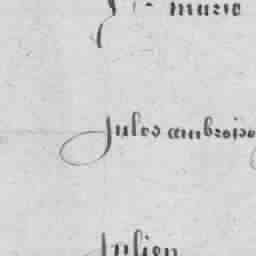 marie
Jules ambroise
Julien